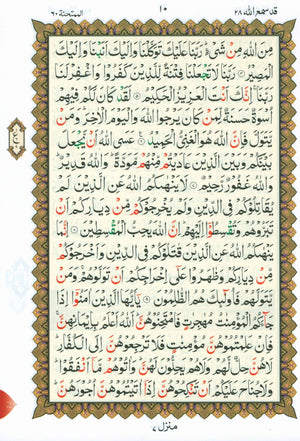 قد سمع الله ٢٨
١٠
الممتحنة ٦٠
مِنَ اللّٰهِ مِنْ شَیْءٍ رَبَّنَا عَلَیْكَ تَوَكَّلْنَا وَاِلَیْكَ اَنَبْنَا وَاِلَیْكَ
الْمَصِیْرُ رَبَّنَا لَا تَجْعَلْنَا فِتْنَةً لِّلَّذِیْنَ كَفَرُوْا وَاغْفِرْ لَنَا
رَبَّنَا اِنَّكَ اَنْتَ الْعَزِیْزُ الْحَكِیْمُ لَقَدْ كَانَ لَكُمْ فِیْهِمْ
اُسْوَةٌ حَسَنَةٌ لِّمَنْ كَانَ یَرْجُوا اللّٰهَ وَالْیَوْمَ الْاٰخِرَ وَمَنْ
یَّتَوَلَّ فَاِنَّ اللّٰهَ هُوَ الْغَنِیُّ الْحَمِیْدُ عَسَی اللّٰهُ اَنْ یَّجْعَلَ
بَیْنَكُمْ وَبَیْنَ الَّذِیْنَ عَادَیْتُمْ مِّنْهُمْ مَّوَدَّةً وَاللّٰهُ قَدِیْرٌ
وَاللّٰهُ غَفُوْرٌ رَّحِیْمٌ لَا یَنْهٰىكُمُ اللّٰهُ عَنِ الَّذِیْنَ لَمْ
یُقَاتِلُوْكُمْ فِی الدِّیْنِ وَلَمْ یُخْرِجُوْكُمْ مِّنْ دِیَارِكُمْ اَنْ
تَبَرُّوْهُمْ وَتُقْسِطُوْا اِلَیْهِمْ اِنَّ اللّٰهَ یُحِبُّ الْمُقْسِطِیْنَ اِنَّمَا
یَنْهٰىكُمُ اللّٰهُ عَنِ الَّذِیْنَ قٰتَلُوْكُمْ فِی الدِّیْنِ وَاَخْرَجُوْكُمْ
مِّنْ دِیَارِكُمْ وَظٰهَرُوْا عَلٰی اِخْرَاجِكُمْ اَنْ تَوَلَّوْهُمْ وَمَنْ
یَّتَوَلَّهُمْ فَاُولٰٓئِكَ هُمُ الظّٰلِمُوْنَ یٰٓاَیُّهَا الَّذِیْنَ اٰمَنُوْا اِذَا
جَآءَكُمُ الْمُؤْمِنٰتُ مُهٰجِرٰتٍ فَامْتَحِنُوْهُنَّ اَللّٰهُ اَعْلَمُ بِاِیْمَانِهِنَّ
فَاِنْ عَلِمْتُمُوْهُنَّ مُؤْمِنٰتٍ فَلَا تَرْجِعُوْهُنَّ اِلَی الْكُفَّارِ
لَاهُنَّ حِلٌّ لَّهُمْ وَلَاهُمْ یَحِلُّوْنَ لَهُنَّ وَاٰتُوْهُمْ مَّآ اَنْفَقُوْا
وَلَاجُنَاحَ عَلَیْكُمْ اَنْ تَنْكِحُوْهُنَّ اِذَآ اٰتَیْتُمُوْهُنَّ اُجُوْرَهُنَّ
منزل ٧